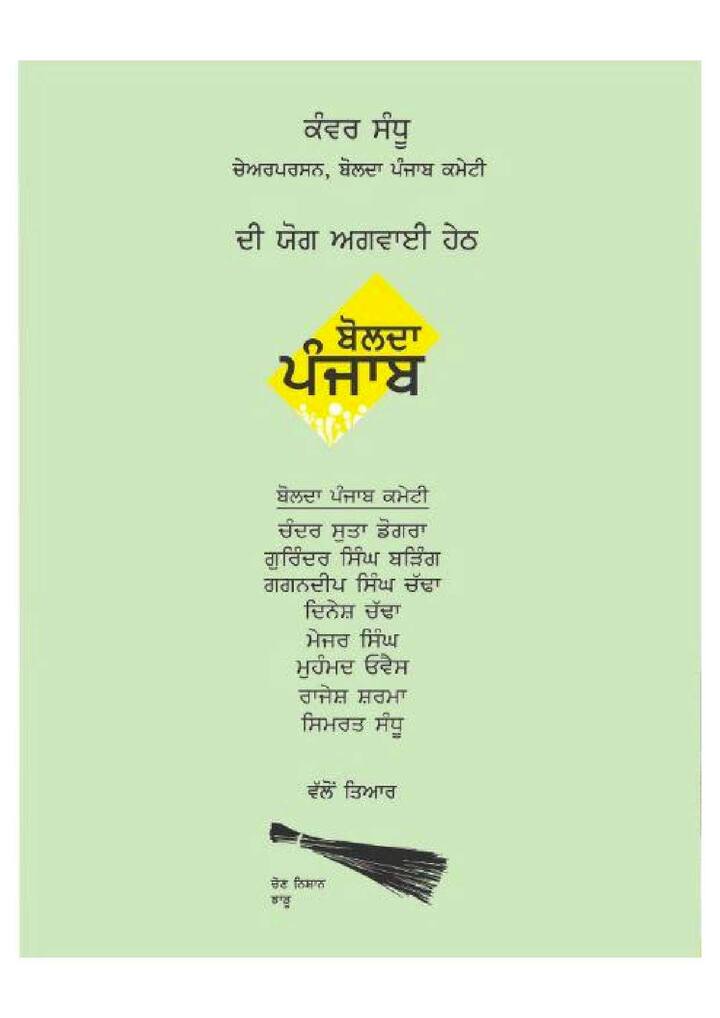 ਕੰਵਰ ਸੰਧੂ
ਚੇਅਰਪਰਸਨ, ਬੋਲਦਾ ਪੰਜਾਬ ਕਮੇਟੀ
ਦੀ ਯੋਗ ਅਗਵਾਈ ਹੇਠ
ਬੋਲਦਾ
ਪੰਜਾਬ
ਬੋਲਦਾ ਪੰਜਾਬ ਕਮੇਟੀ
ਚੰਦਰ ਸੁਤਾ ਡੋਗਰਾ
ਗੁਰਿੰਦਰ ਸਿੰਘ ਬੜਿੰਗ
ਗਗਨਦੀਪ ਸਿੰਘ ਚੱਢਾ
ਦਿਨੇਸ਼ ਚੱਢਾ
ਮੇਜਰ ਸਿੰਘ
ਮੁਹੰਮਦ ਓਵੈਸ
ਰਾਜੇਸ਼ ਸ਼ਰਮਾ
ਸਿਮਰਤ ਸੰਧੂ
ਵੱਲੋਂ ਤਿਆਰ
ਚੋਣ ਨਿਸ਼ਾਨ
ਝਾੜੂ